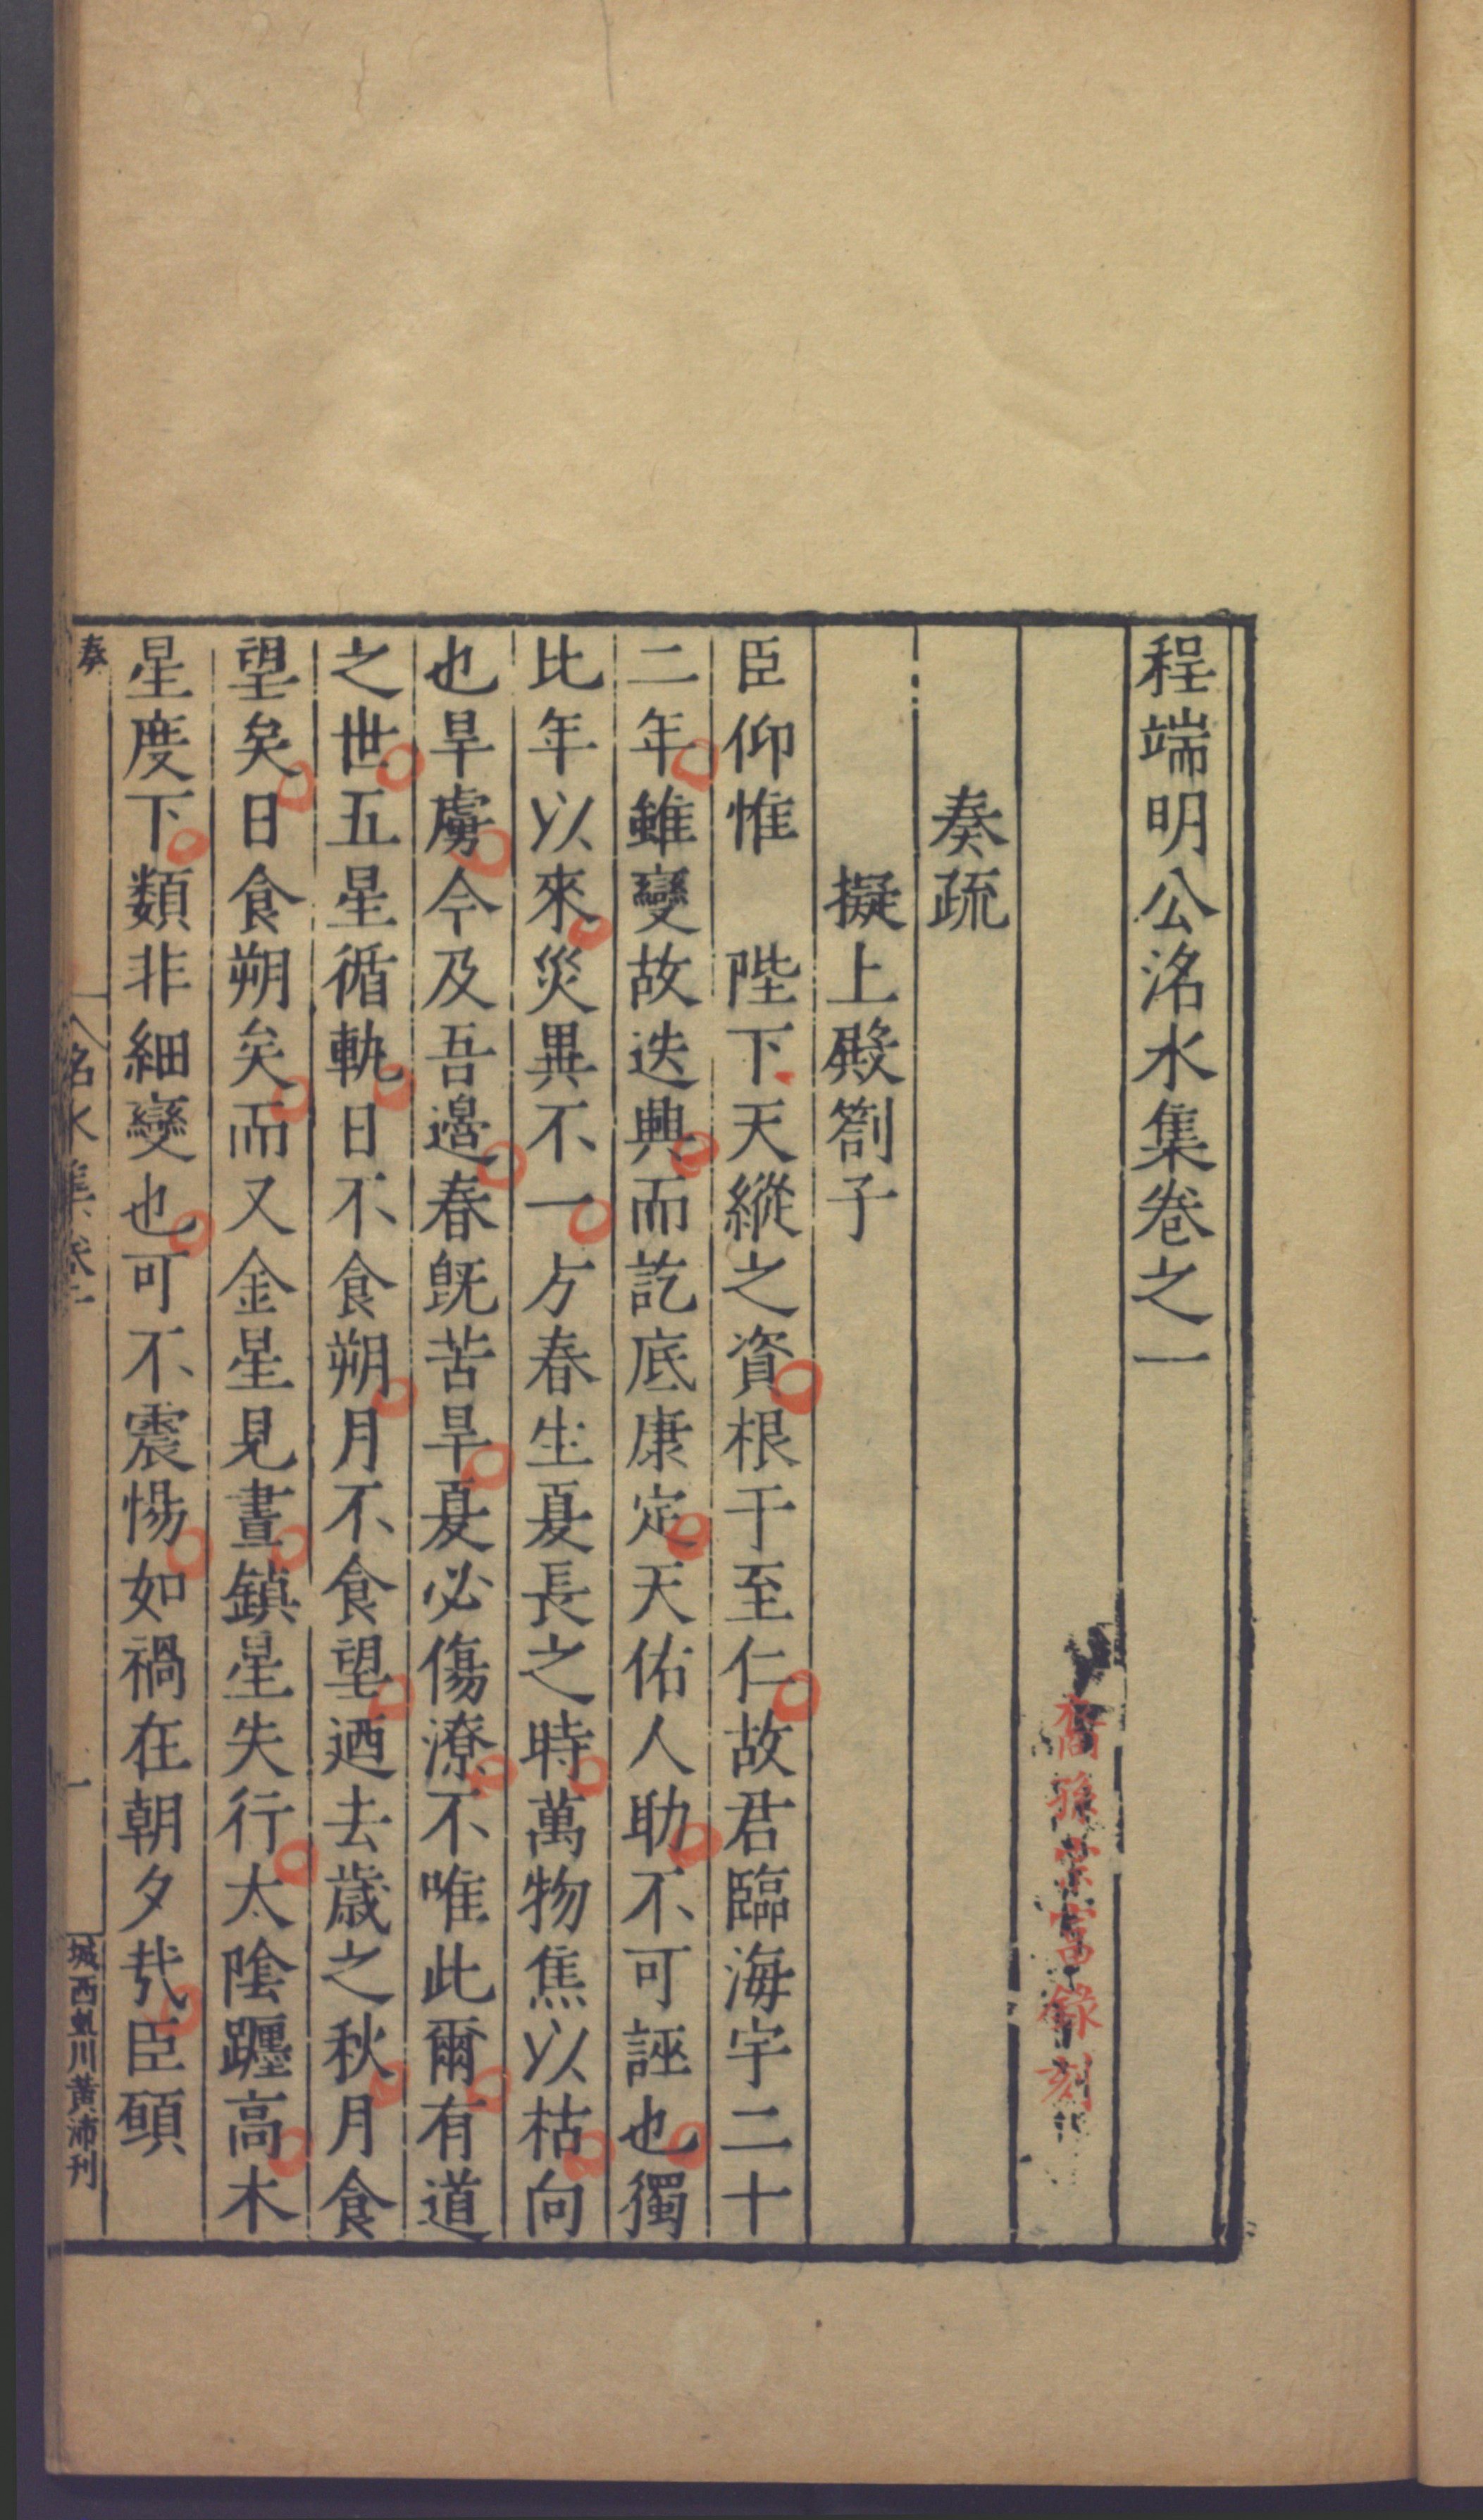 程端明公洺水集卷之一
裔孫宗富錄刻
奏疏
擬上殿劄子
臣仰惟　陛下天縱之資根于至仁故君臨海宇二十
二年雖變故迭興而訖底康定天佑人助不可誣也獨
比年以來災異不一方春生夏長之時萬物焦以枯向
也旱虜今及吾邉春旣苦旱夏必傷潦不唯此爾有道
之世五星循軌日不食朔月不食望廼去歲之秋月食
望矣日食朔矣而又金星見晝鎮星失行太陰躔高木
星度下類非細變也可不震惕如禍在朝夕㦲臣頋
奏
洺水集卷一
一
城西虬川黃沛刊